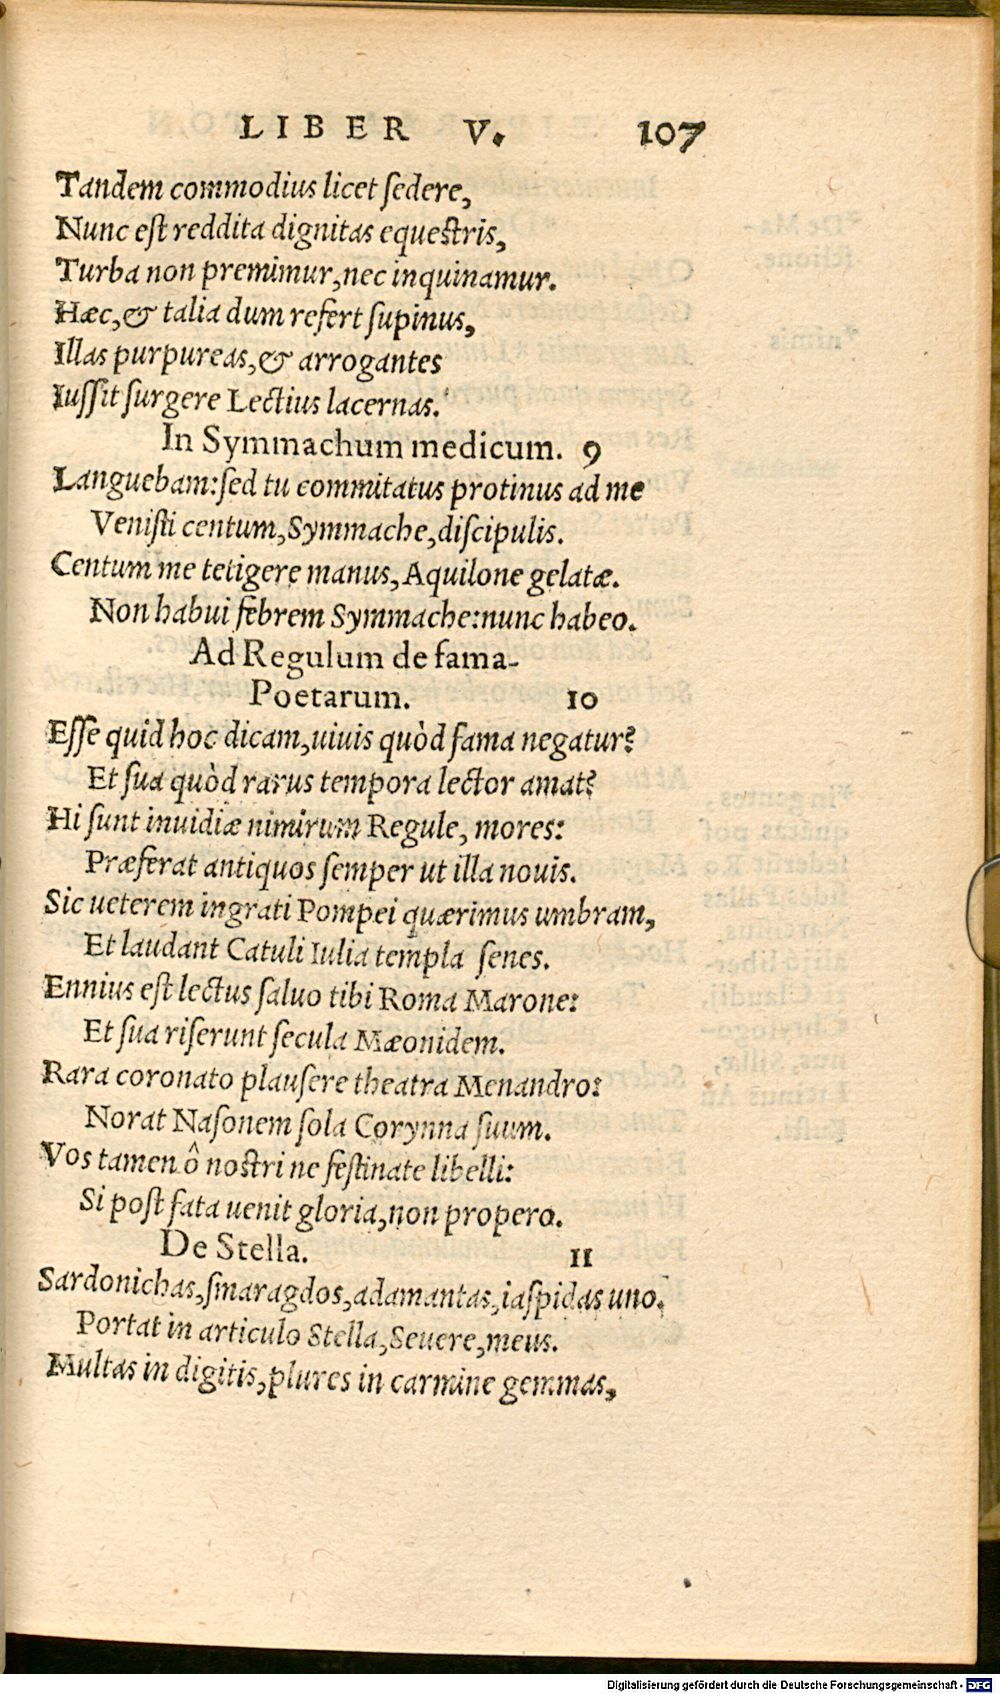 LIBER V. 107
Tandem commodius licet sedere,
Nunc est reddita dignitas equestris,
Turba non premimur, nec inquinamur.
Hæc, & talia dum refert supinus,
Illas purpureas, & arrogantes
Iussit surgere Lectius lacernas.
In Symmachum medicum. 9
Languebam: sed tu commitatus protinus ad me
Venisti centum, Symmache, discipulis.
Centum me tetigere manus, Aquilone gelatæ.
Non habui febrem Symmache: nunc habeo.
Ad Regulum de fama-
Poetarum. 10
Esse quid hoc dicam, uiuis quòd fama negatur?
Et sua quòd rarus tempora lector amat?
Hi sunt inuidiæ nimirum Regule, mores:
Præferat antiquos semper ut illa nouis.
Sic ueterem ingrati Pompei quærimus umbram,
Et laudant Catuli Iulia templa senes.
Ennius est lectus saluo tibi Roma Marone:
Et sua riserunt secula Mæonidem.
Rara coronato plausere theatra Menandro:
Norat Nasonem sola Corynna suum.
Vos tamen ô nostri ne festinate libelli:
Si post fata uenit gloria, non propero.
De Stella. 11
Sardonichas, smaragdos, adamantas, iaspidas uno,
Portat in articulo Stella, Seuere, meus.
Multas in digitis, plures in carmine gemmas,
Digitalisierung gefördert durch die Deutsche Forschungsgemeinschaft - DFG